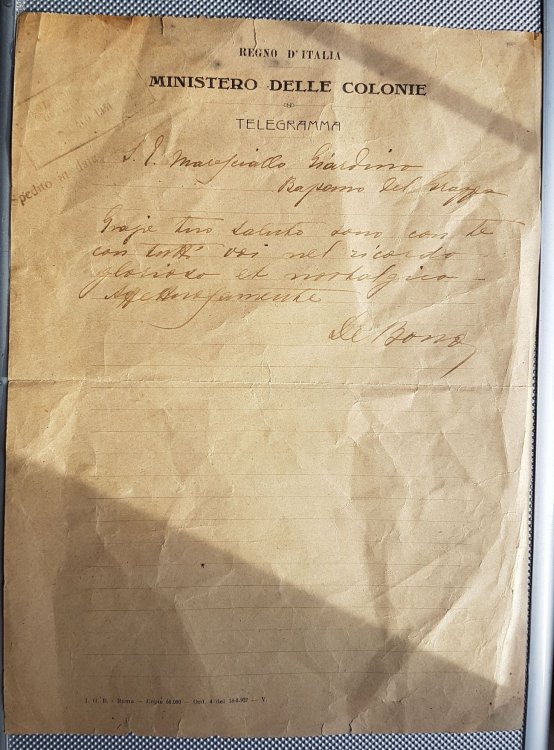 REGNO D'ITALIA
MINISTERO DELLE COLONIE
TELEGRAMMA
Spedito il
S. E. Maresciallo Giardino
Bassano del Grappa
Grazie tuo saluto sono con te
con tutti voi nel ricordo
glorioso et nostalgico -
Affettuosamente
De Bono
I. G. B. - Roma - Copie 60.000 - Ord. 4 del 18-8-927 - V.